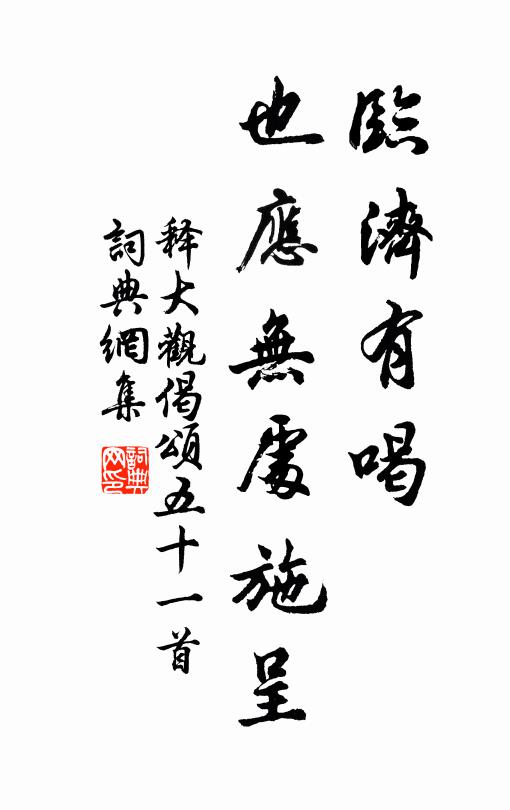 臨濟有喝
也應無處施呈
释大觀偈頌五十一首
詞典網集
詞典网印